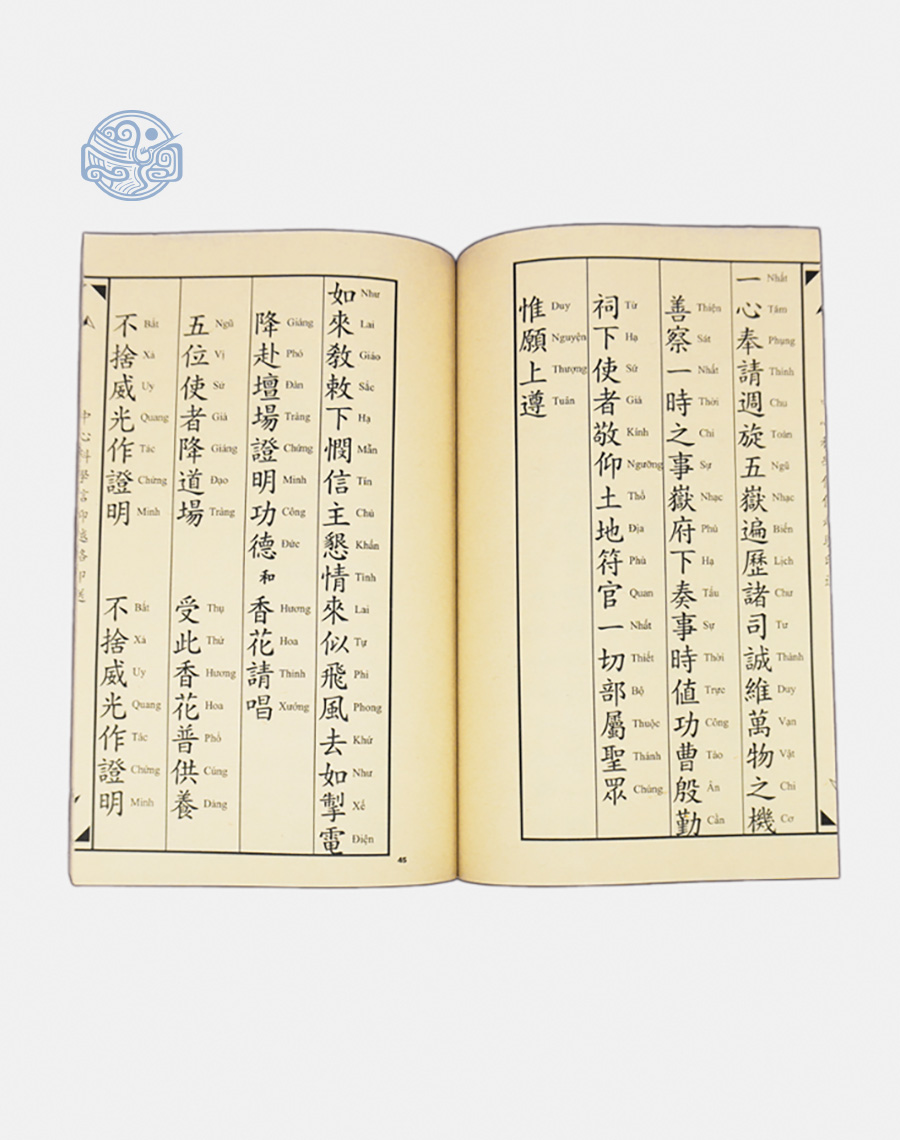 一心奉請週旋五嶽遍歷諸司誠維萬物之機
Nhất Tâm Phụng Thỉnh Chu Toàn Ngũ Nhạc Biến Lịch Chư Tư Thành Duy Vạn Vật Chi Cơ
善察一時之事嶽府下奏事時值功曹殷勤
Thiện Sát Nhất Thời Chi Sự Nhạc Phủ Hạ Tấu Sự Thời Trực Công Tào Ân Cần
祠下使者敬仰土地符官一切部屬聖眾
Từ Hạ Sứ Giả Kính Ngưỡng Thổ Địa Phù Quan Nhất Thiết Bộ Thuộc Thánh Chúng
惟願上遵
Duy Nguyện Thượng Tuân
如來教敕下憫信主懇情來似飛風去如掣電
Như Lai Giáo Sắc Hạ Mẫn Tín Chủ Khẩn Tình Lai Tự Phi Phong Khứ Như Xế Điện
降赴壇場證明功德 和 香花請唱
Giáng Phó Đàn Tràng Chứng Minh Công Đức Hương Hoa Thỉnh Xướng
五位使者降道場 受此香花普供養
Ngũ Vị Sứ Giả Giáng Đạo Tràng Thụ Thử Hương Hoa Phổ Cúng Dàng
不捨威光作證明 不捨威光作證明
Bất Xả Uy Quang Tác Chứng Minh Bất Xả Uy Quang Tác Chứng Minh
45